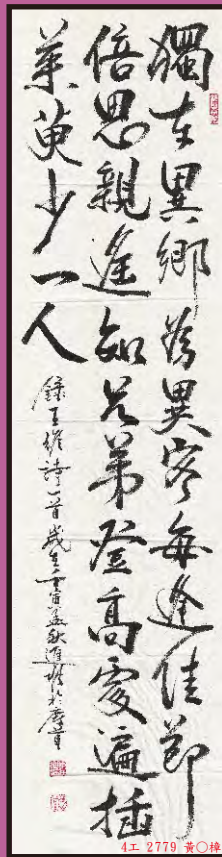 獨在異鄉為異客每逢佳節
倍思親遙知兄弟登高處遍插
茱萸少一人
錄王維詩一首歲在壬寅孟秋
4工 2779 黃○樟